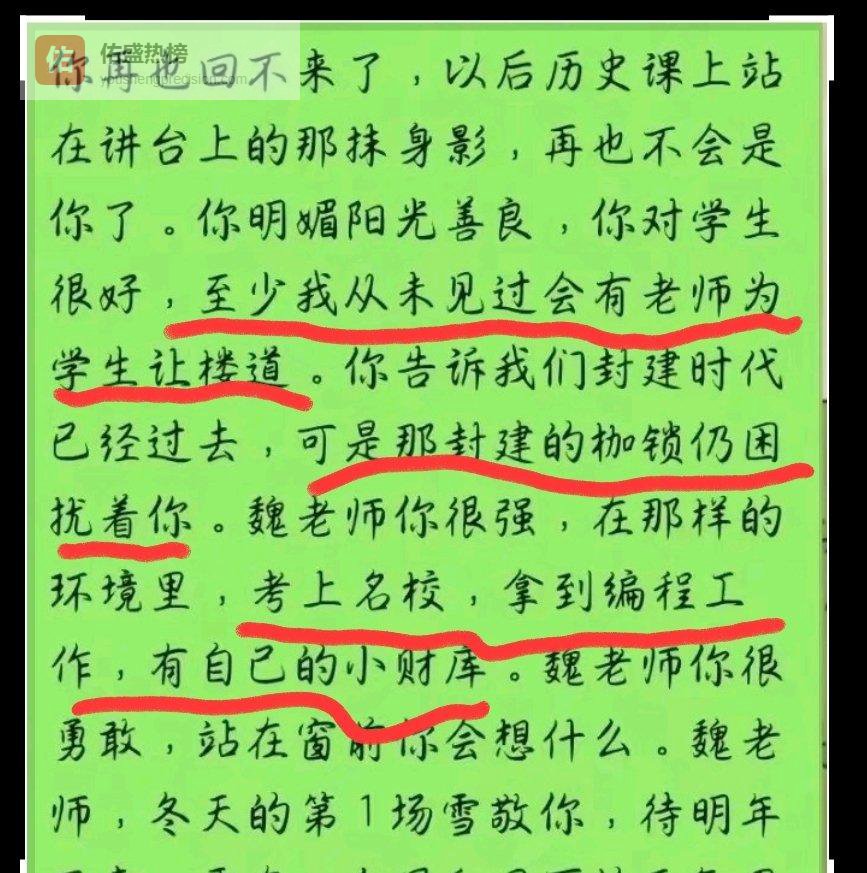 佑
佑盛热榜
youshengprecision.com
你再也回不来了，以后历史课上站
在讲台上的那抹身影，再也不会是
你了。你明媚阳光善良，你对学生
很好，至少我从未见过会有老师为
学生让楼道。你告诉我们封建时代
已经过去，可是那封建的枷锁仍困
扰着你。魏老师你很强，在那样的
环境里，考上名校，拿到编程工
作，有自己的小财库。魏老师你很
勇敢，站在窗前你会想什么。魏老
师，冬天的第1场雪敬你，待明年